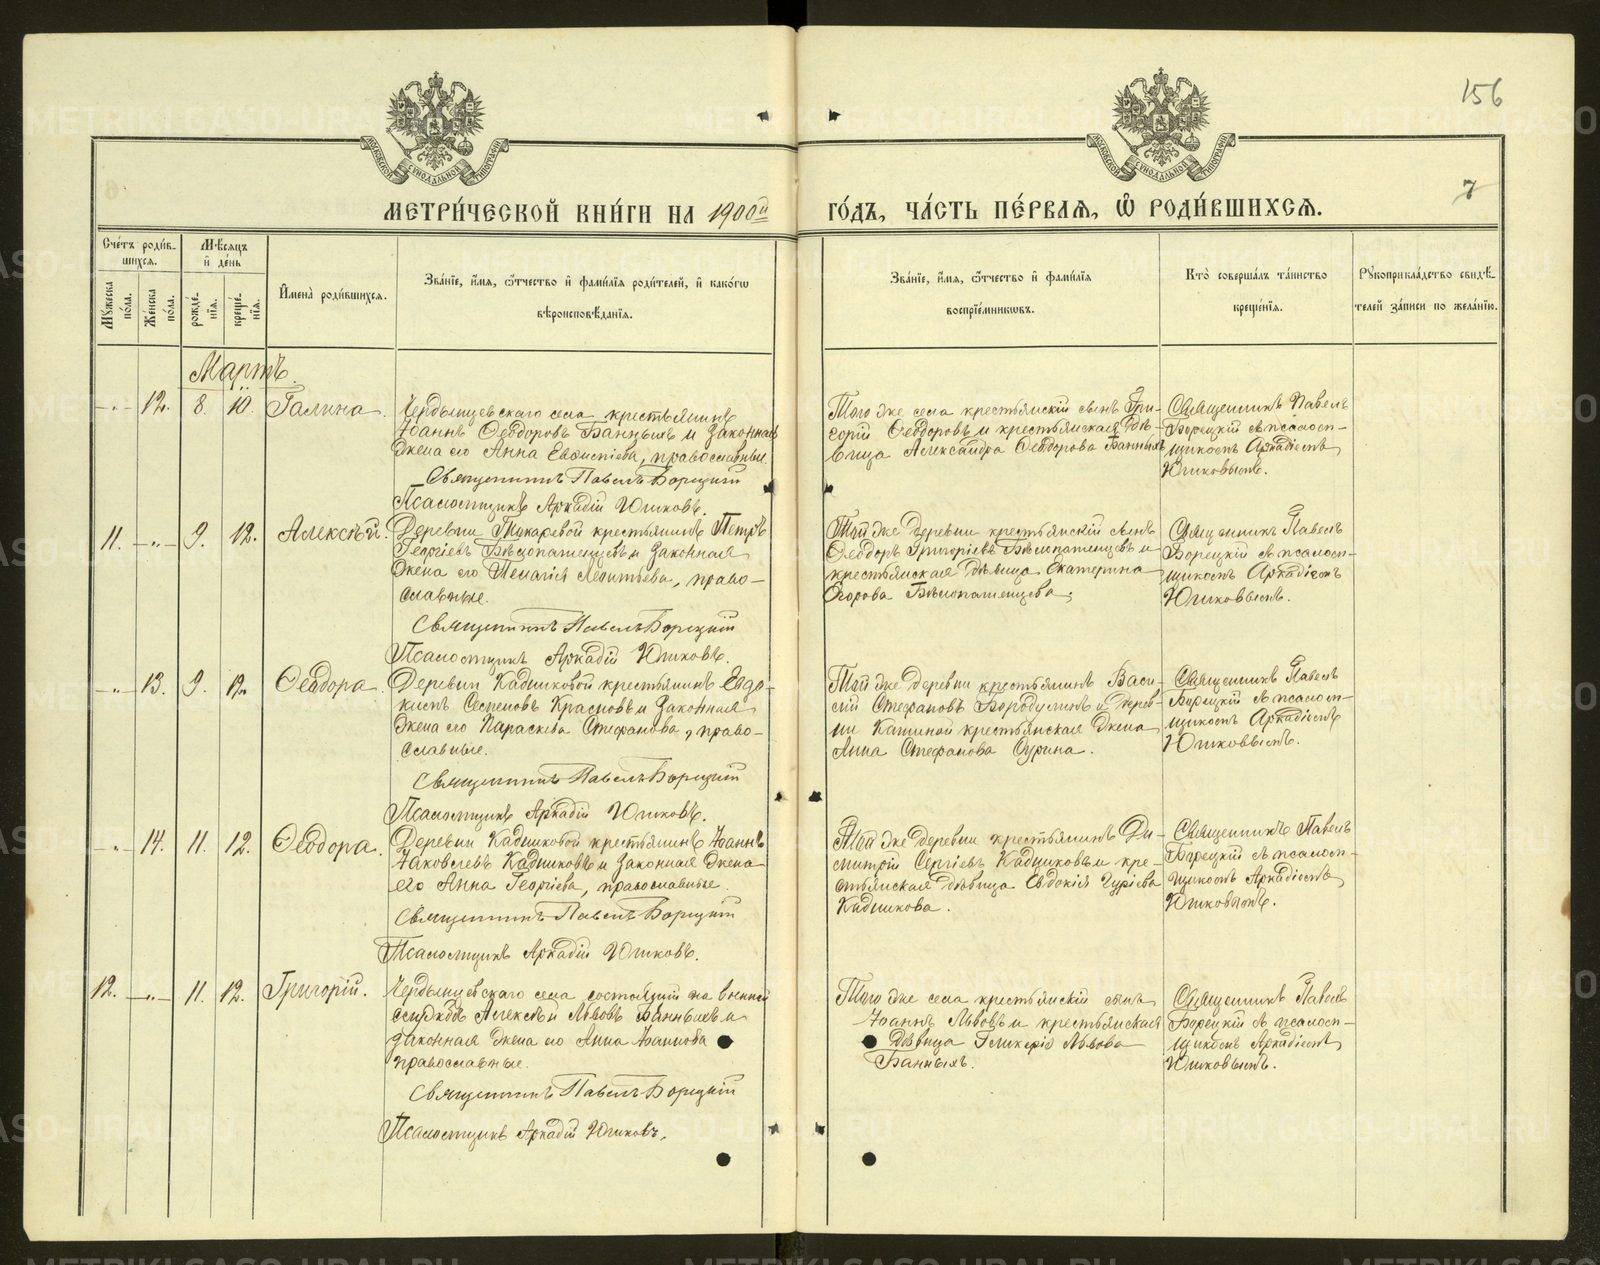 156
7
МОСКОВСКОЙ СѴНОДАЛЬНОЙ ТИПОГРАФІИ
МОСКОВСКОЙ СѴНОДАЛЬНОЙ ТИПОГРАФІИ
МЕТРИ́ЧЕСКОЙ КНИ́ГИ НА 1900й ГО́ДЪ, ЧА́СТЬ ПЕ́РВАЯ, Ѽ РОДИ́ВШИХСЯ.
Сче́тъ роди́в-
шихся.
Мѣ́сяцъ
и҆ де́нь
Му́жеска
по́ла.
Же́нска
по́ла.
рожде́-
нія.
креще́-
нія.
И҆мена̀ роди́вшихся.
Зва́ніе, и҆́мя, ѻ҆́тчество и҆ фами́лія роди́телей, и҆ како́гѡ
вѣроисповѣ́данія.
Зва́ніе, и҆́мя, ѻ҆́тчество и҆ фами́лія
воспріе́мниковъ.
Кто̀ соверша́лъ та́инство
креще́нія.
Рукоприкла́дство свидѣ́-
телей за́писи по жела́нію.
Мартъ.
12. 8. 10. Галина.
Чердынцевскаго села крестьянинъ
Іоаннъ Ѳеодоровъ Банныхъ и законная
жена его Анна Евсигніева, православные.
Священникъ Павелъ Борецкій
Псаломщикъ Аркадій Юшковъ.
Того же села крестьянскій сынъ Гри-
горій Ѳеодоровъ и крестьянская дѣ-
вица Александра Ѳеодорова Банныхъ
Священникъ Павелъ
Борецкій съ псалом-
щикомъ Аркадіемъ
Юшковымъ.
11. 9. 12. Алексѣй.
Деревни Токаревой крестьянинъ Петръ
Георгіевъ Бѣлопашенцевъ и законная
жена его Пелагія Леонтьева, право-
славные.
Священникъ Павелъ Борецкій
Псаломщикъ Аркадій Юшковъ.
Той же деревни крестьянскій сынъ
Ѳеодоръ Григоріевъ Бѣлопашенцевъ и
крестьянская дѣвица Екатерина
Егорова Бѣлопашенцева.
Священникъ Павелъ
Борецкій съ псалом-
щикомъ Аркадіемъ
Юшковымъ.
13. 9. 12. Ѳеодора.
Деревни Кадниковой крестьянинъ Евдо-
кимъ Семеновъ Красновъ и законная
жена его Параскева Стефанова, право-
славные.
Священникъ Павелъ Борецкій
Псаломщикъ Аркадій Юшковъ.
Той же деревни крестьянинъ Васи-
лій Стефановъ Бородулинъ и дерев-
ни Катиной крестьянская жена
Анна Стефанова Сурина.
Священникъ Павелъ
Борецкій съ псалом-
щикомъ Аркадіемъ
Юшковымъ.
14. 11. 12. Ѳеодора.
Деревни Кадниковой крестьянинъ Іоаннъ
Іаковлевъ Кадниковъ и законная жена
его Анна Георгіева, православные.
Священникъ Павелъ Борецкій
Псаломщикъ Аркадій Юшковъ.
Той же деревни крестьянинъ Ди-
митрій Сергіевъ Кадниковъ и кре-
стьянская дѣвица Евдокія Гуріева
Кадникова.
Священникъ Павелъ
Борецкій съ псалом-
щикомъ Аркадіемъ
Юшковымъ.
12. 11. 12. Григорій.
Чердынцевскаго села состоящій на военной
службѣ Алексѣй Львовъ Банныхъ и
законная жена его Анна Іоаннова
православные.
Священникъ Павелъ Борецкій
Псаломщикъ Аркадій Юшковъ.
Того же села крестьянскій сынъ
Іоаннъ Львовъ и крестьянская
дѣвица Гликерія Львова
Банныхъ.
Священникъ Павелъ
Борецкій съ псалом-
щикомъ Аркадіемъ
Юшковымъ.